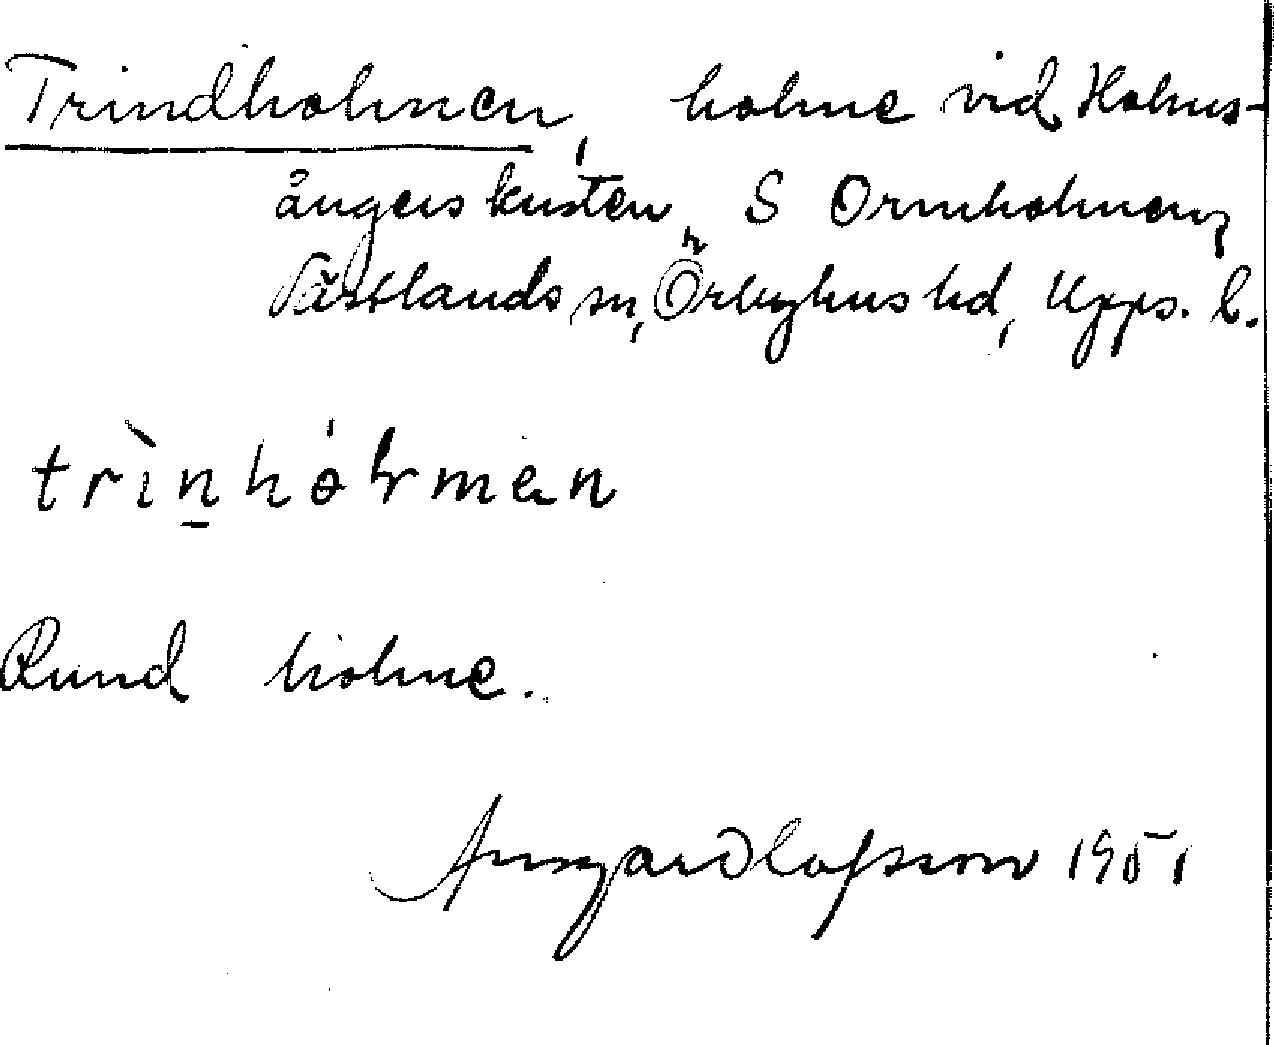 Trindholmen, holme vid Holms-
ångers kusten, S Ormholmen,
Västlands sn, Örbyhus hd, Upps. l.
trìn̠hólmen
Rund holme.
Ansgar Olofsson 1951